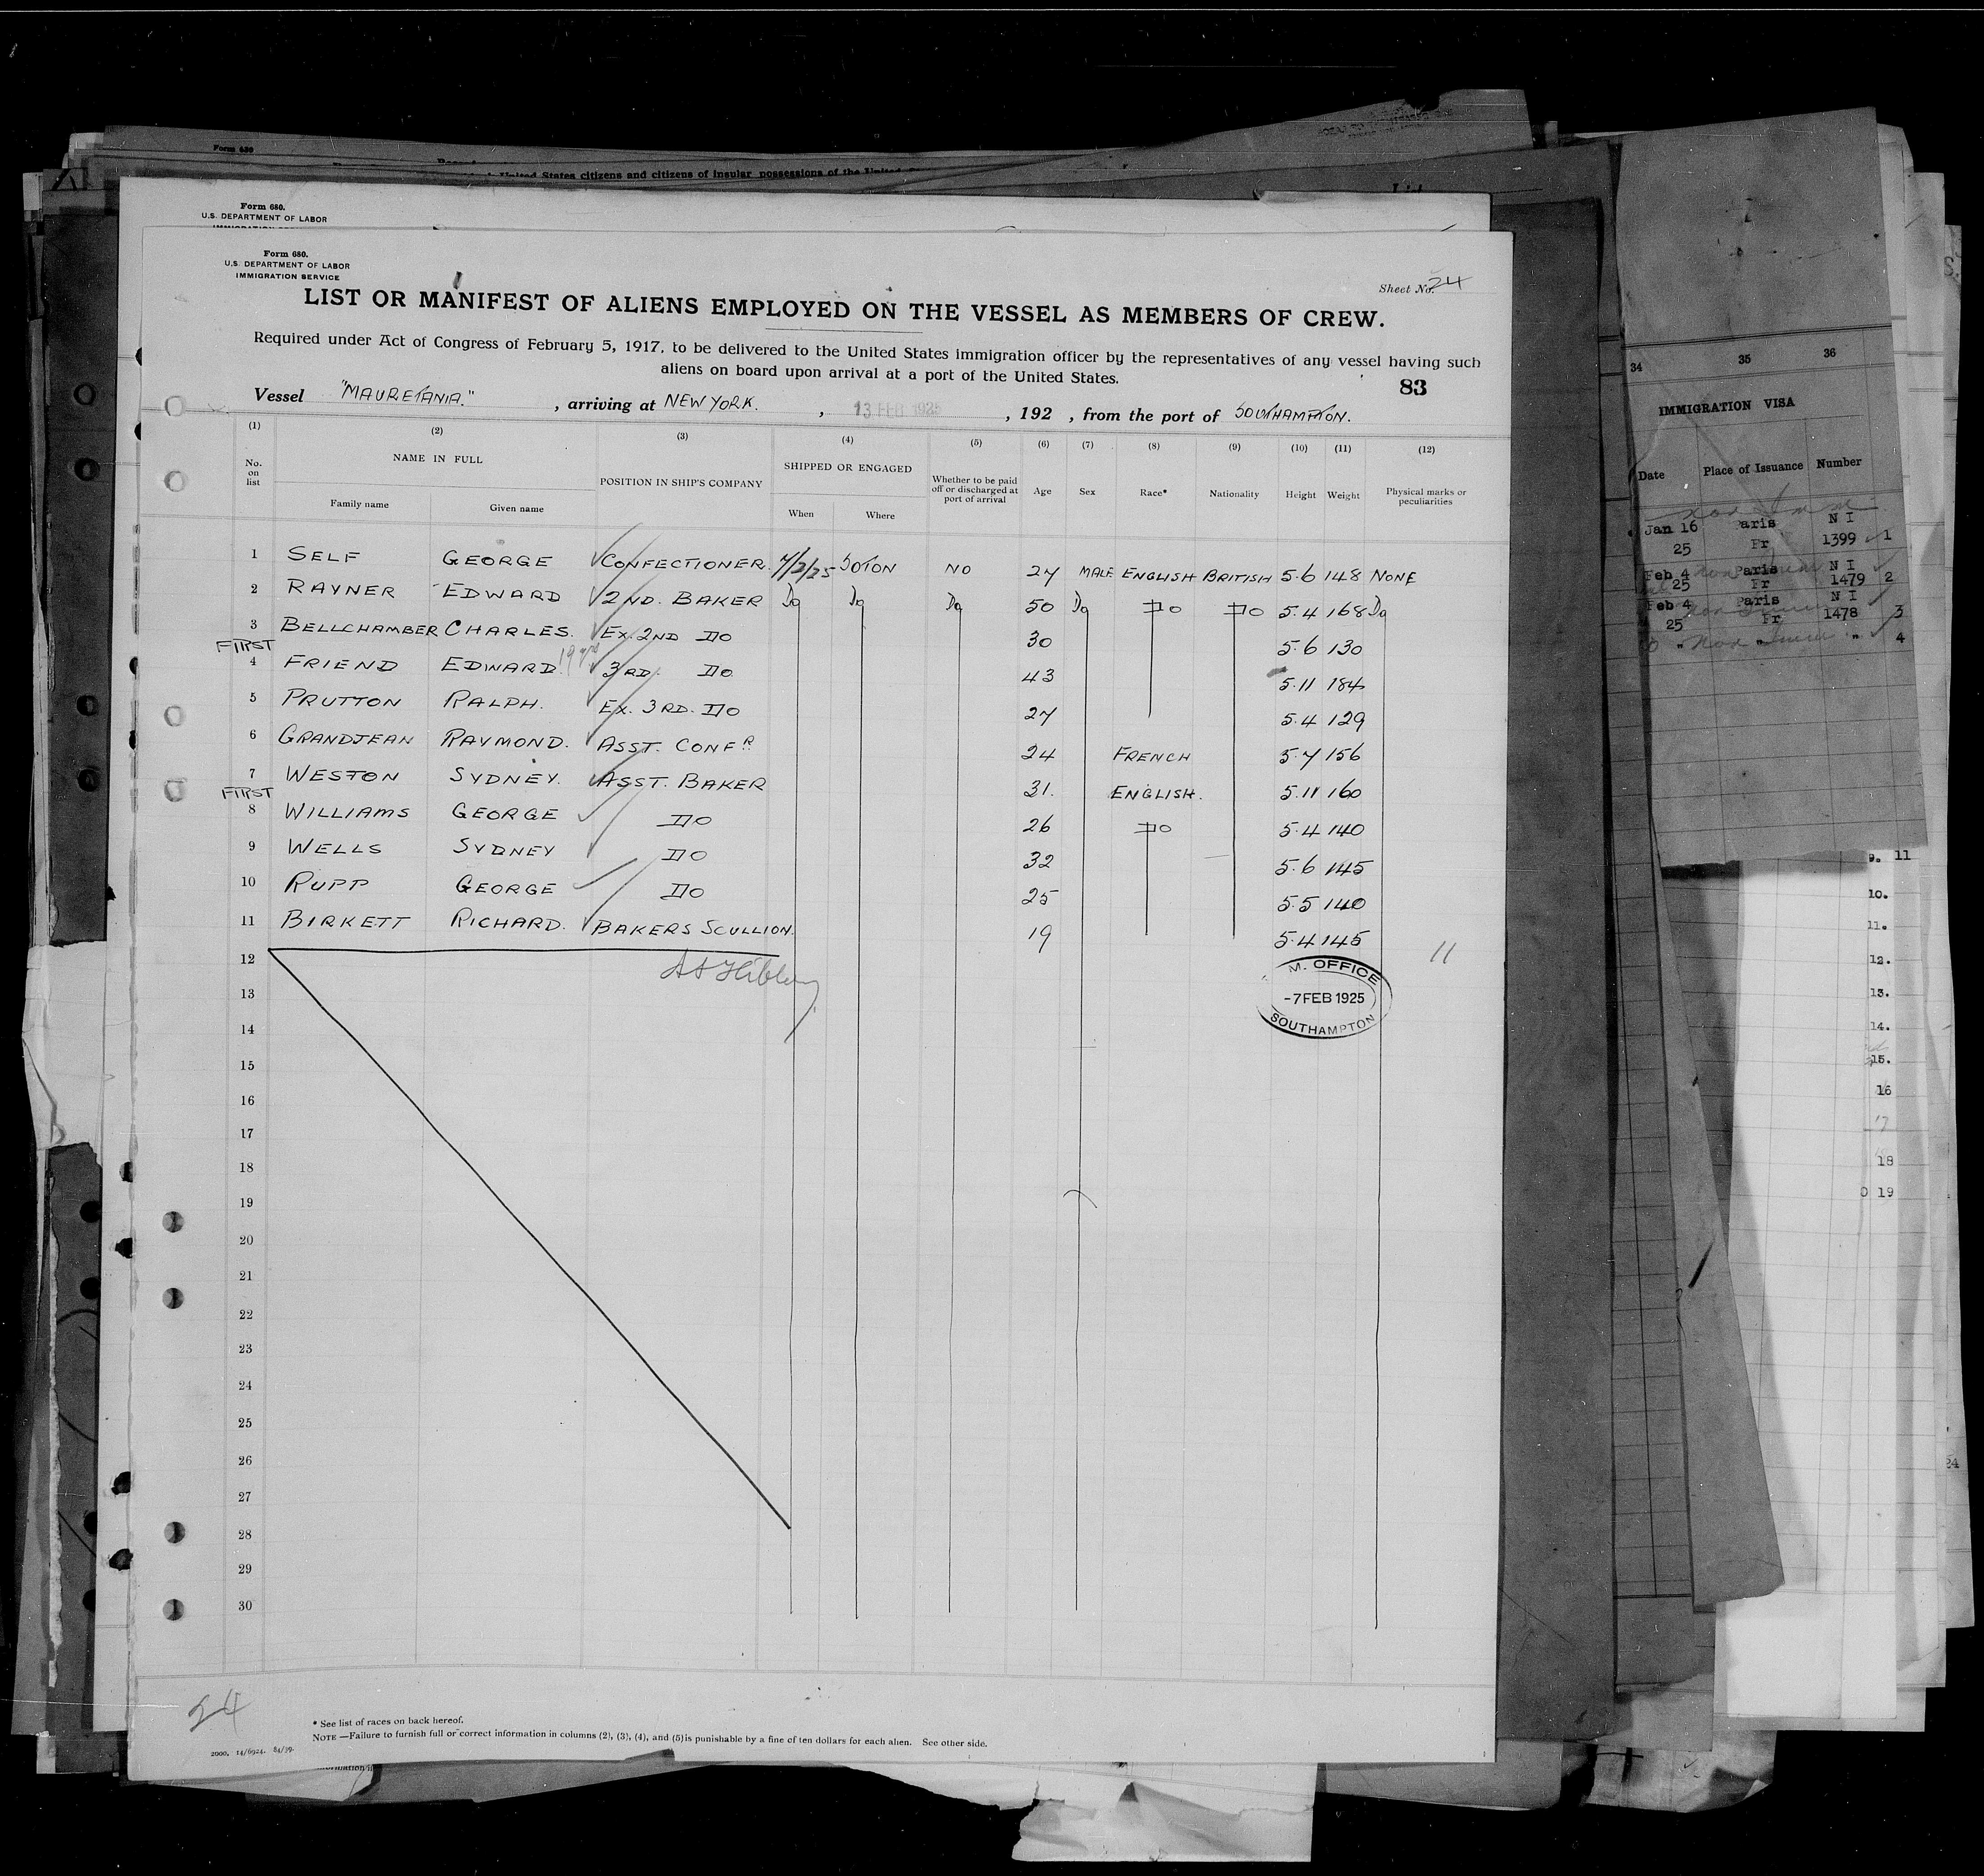 Form 630
United States citizens and citizens of insular possessions of the United
Form 680.
U.S. DEPARTMENT OF LABOR
Form 680.
U.S. DEPARTMENT OF LABOR
IMMIGRATION SERVICE
Sheet No. 24
LIST OR MANIFEST OF ALIENS EMPLOYED ON THE VESSEL AS MEMBERS OF CREW.
Required under Act of Congress of February 5, 1917, to be delivered to the United States immigration officer by the representatives of any vessel having such
aliens on board upon arrival at a port of the United States.
83
Vessel "MAURETANIA." , arriving at NEW YORK. , 13 FEB 1925 , 192 , from the port of SOUTHAMPTON.
(1) (2) (3) (4) (5) (6) (7) (8) (9) (10) (11) (12)
No. on list NAME IN FULL POSITION IN SHIP'S COMPANY SHIPPED OR ENGAGED Whether to be paid off or discharged at port of arrival Age Sex Race* Nationality Height Weight Physical marks or peculiarities
Family name Given name When Where
1 SELF GEORGE CONFECTIONER. 7/2/25 SOTON NO 27 MALE ENGLISH BRITISH 5.6 148 NONE
2 RAYNER EDWARD 2ND. BAKER Do Do Do 50 Do Do Do 5.4 168 Do
3 BELLCHAMBER CHARLES. Ex. 2ND Do 30 5.6 130
FIRST
4 FRIEND EDWARD. 19 yrs 3RD. Do 43 5.11 184
5 PRUTTON RALPH. Ex. 3RD. Do 27 5.4 129
6 GRANDJEAN RAYMOND. ASST. CONFR 24 FRENCH 5.7 156
7 WESTON SYDNEY. ASST. BAKER 31. ENGLISH. 5.11 160
FIRST
8 WILLIAMS GEORGE Do 26 Do 5.4 140
9 WELLS SYDNEY Do 32 5.6 145
10 RUPP GEORGE Do 25 5.5 140
11 BIRKETT RICHARD. BAKERS SCULLION. 19 5.4 145
11
12
13
14
15
16
17
18
19
20
21
22
23
24
25
26
27
28
29
30
M. OFFICE
-7 FEB 1925
SOUTHAMPTON
24
* See list of races on back hereof.
NOTE—Failure to furnish full or correct information in columns (2), (3), (4), and (5) is punishable by a fine of ten dollars for each alien. See other side.
2000. 14/6924. 84/39.
34 35 36
IMMIGRATION VISA
Date Place of Issuance Number
Jan 16 Paris N I
25 Fr 1399 1
Feb 4 Paris N I
25 Fr 1479 2
Feb 4 Paris N I
25 Fr 1478 3
" " " 4
9. 11
10.
11.
12.
13.
14.
15.
16
18
19
24